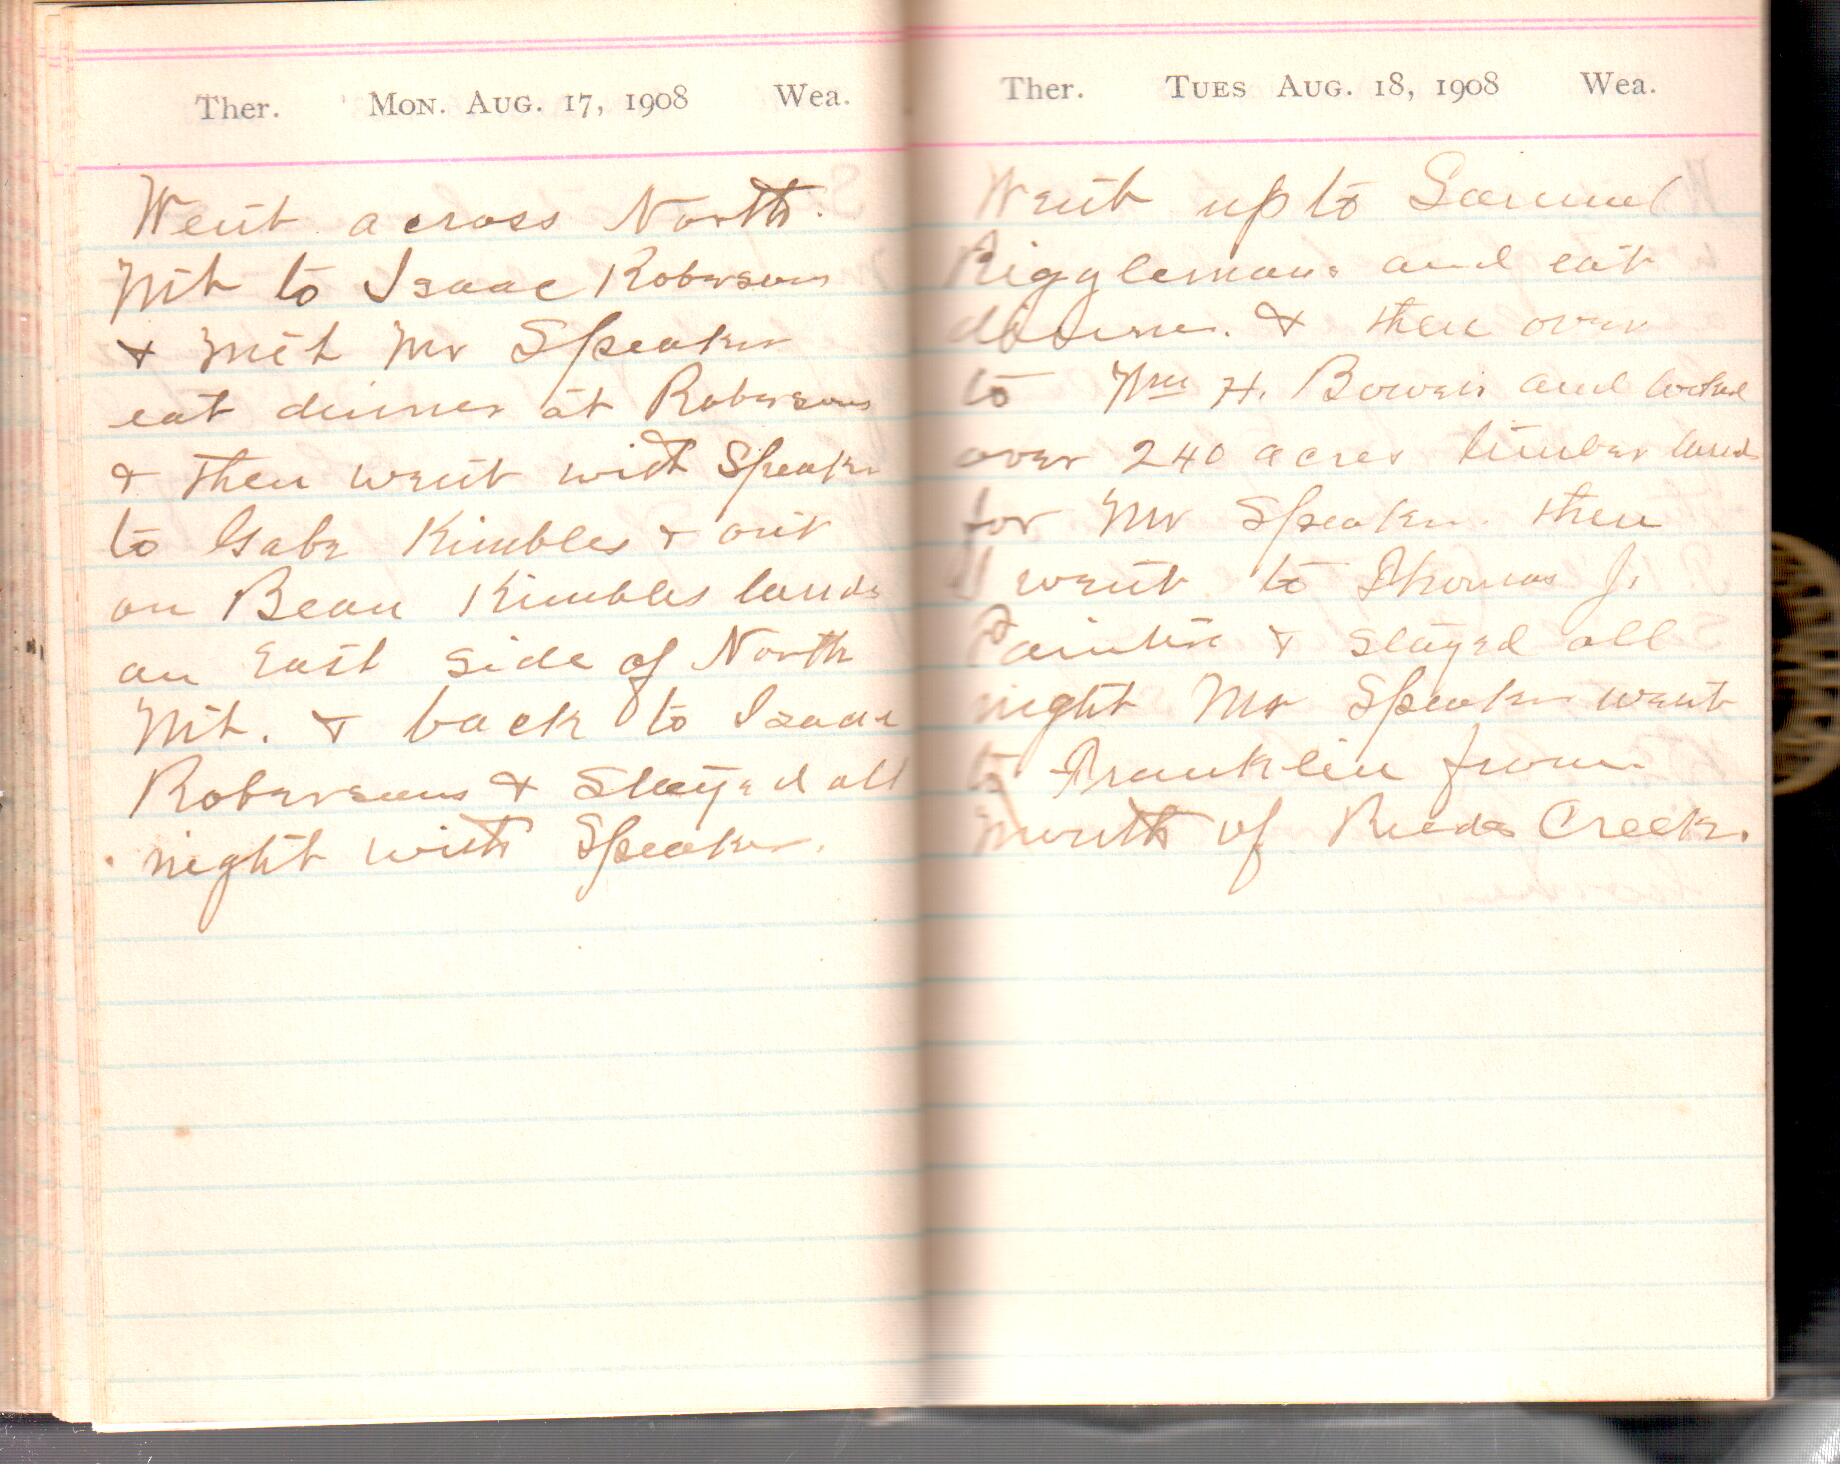 Ther. Mon. Aug. 17, 1908 Wea.
Went across North
Mt to Isaac Robersons
& met Mr Speaker
eat dinner at Robersons
& then went with Speaker
to Gabe Kimbles & out
on Bean Kimbles lands
on East side of North
Mt. & back to Isaac
Robersons & Stayed all
night with Speaker.
Ther. Tues Aug. 18, 1908 Wea.
Went up to Samuel
Rigglemans and eat
dinner. & then over
to Wm H. Bowers and looked
over 240 acres timber land
for Mr Speaker. then
I went to Thomas J.
Painter & stayed all
night Mr Speaker went
to Franklin from
mouth of Reeds Creek.